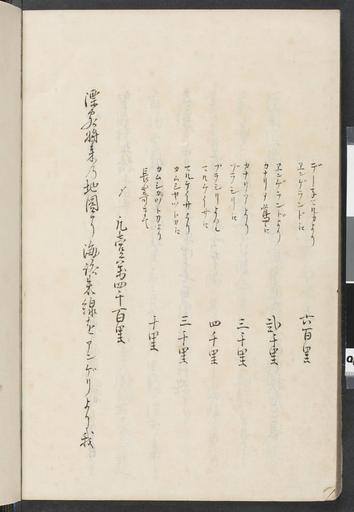 デー子マルカより
エンゲランドに
六百里
エンゲランドより
カナリヤ嶌に
弐千里
カナリヤより
ブラシリに
三千里
ブラシリより
マルケイサに
四千里
マルケイサより
カムシカットカに
三千里
カムシカツトカより
長崎まで
千里
〆 凡壱万四千百里
漂客将来の地圖より海路券線をアンゲリより我